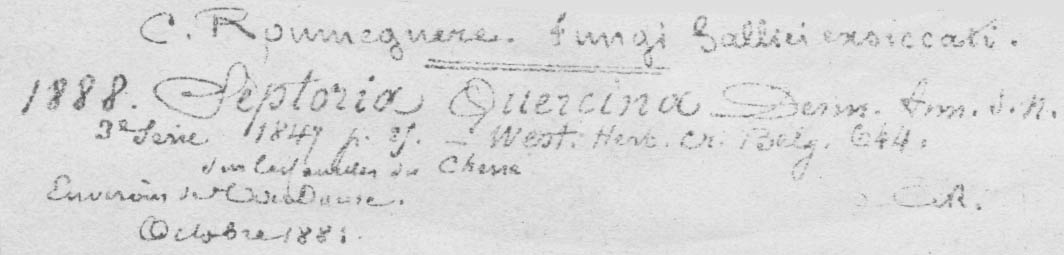 C. Roumeguere. Fungi Gallici exsiccati.
1888. Septoria Quercina Desm. Ann. S. N.
3e Serie 1847 p. – West. Herb. cr. Belg. 644.
sur les feuilles du Chesne
Environs de Toulouse.
C.R.
Octobre 1881.